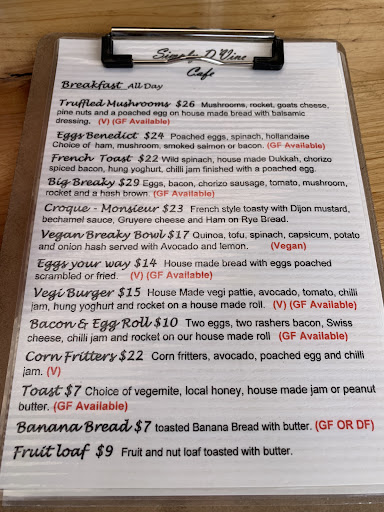 Simply D'Vine
Cafe
Breakfast All Day
Truffled Mushrooms $26 Mushrooms, rocket, goats cheese,
pine nuts and a poached egg on house made bread with balsamic
dressing. (V) (GF Available)
Eggs Benedict $24 Poached eggs, spinach, hollandaise
Choice of ham, mushroom, smoked salmon or bacon. (GF Available)
French Toast $22 Wild spinach, house made Dukkah, chorizo
spiced bacon, hung yoghurt, chilli jam finished with a poached egg.
Big Breaky $29 Eggs, bacon, chorizo sausage, tomato, mushroom,
rocket and a hash brown. (GF Available)
Croque - Monsieur $23 French style toasty with Dijon mustard,
bechamel sauce, Gruyere cheese and Ham on Rye Bread.
Vegan Breaky Bowl $17 Quinoa, tofu, spinach, capsicum, potato
and onion hash served with Avocado and lemon. (Vegan)
Eggs your way $14 House made bread with eggs poached
scrambled or fried. (V) (GF Available)
Vegi Burger $15 House Made vegi pattie, avocado, tomato, chilli
jam, hung yoghurt and rocket on a house made roll. (V) (GF Available)
Bacon & Egg Roll $10 Two eggs, two rashers bacon, Swiss
cheese, chilli jam and rocket on our house made roll (GF Available)
Corn Fritters $22 Corn fritters, avocado, poached egg and chilli
jam. (V)
Toast $7 Choice of vegemite, local honey, house made jam or peanut
butter. (GF Available)
Banana Bread $7 toasted Banana Bread with butter. (GF OR DF)
Fruit loaf $9 Fruit and nut loaf toasted with butter.